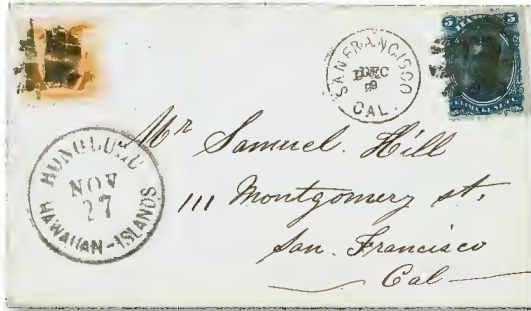 SAN FRANCISCO
DEC
9
CAL.
5 5
HONOLULU
NOV
27
HAWAIIAN-ISLANDS
Mr Samuel. Hill
111 Montgomery st.
San. Francisco
Cal